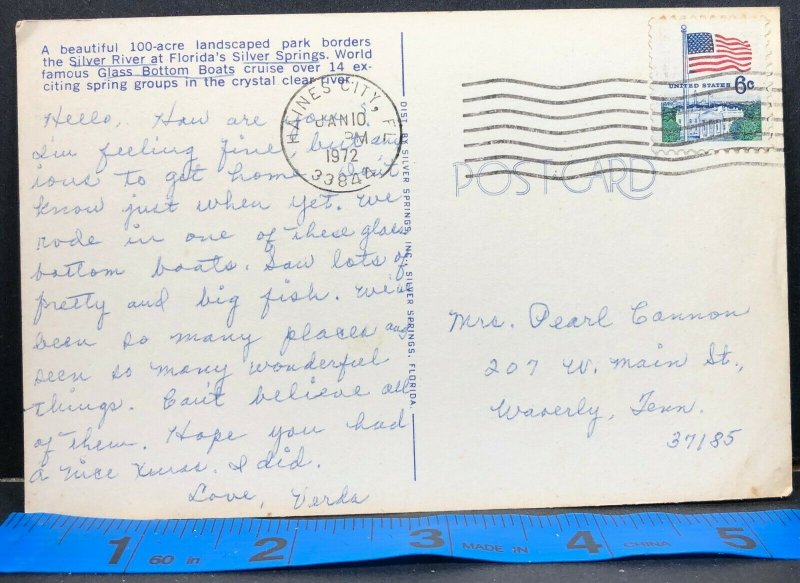 A beautiful 100-acre landscaped park borders
the Silver River at Florida's Silver Springs. World
famous Glass Bottom Boats cruise over 14 ex-
citing spring groups in the crystal clear river.
Hello, How are
I'm feeling fine but anx
ious to get home
know just when yet. We
rode in one of these glass
bottom boats. Saw lots of
pretty and big fish. We've
been so many places and
seen so many wonderful
things. Can't believe all
of them. Hope you had
a nice Xmas. I did.
Love, Verda
DIST. BY SILVER SPRINGS, INC., SILVER SPRINGS, FLORIDA.
HAINES CITY, FL
JAN 10
PM
1972
UNITED STATES 6c
POST CARD
Mrs. Pearl Cannon
207 W. Main St.,
Waverly, Tenn.
37185
1 60 in 2 3 MADE IN 4 CHINA 5